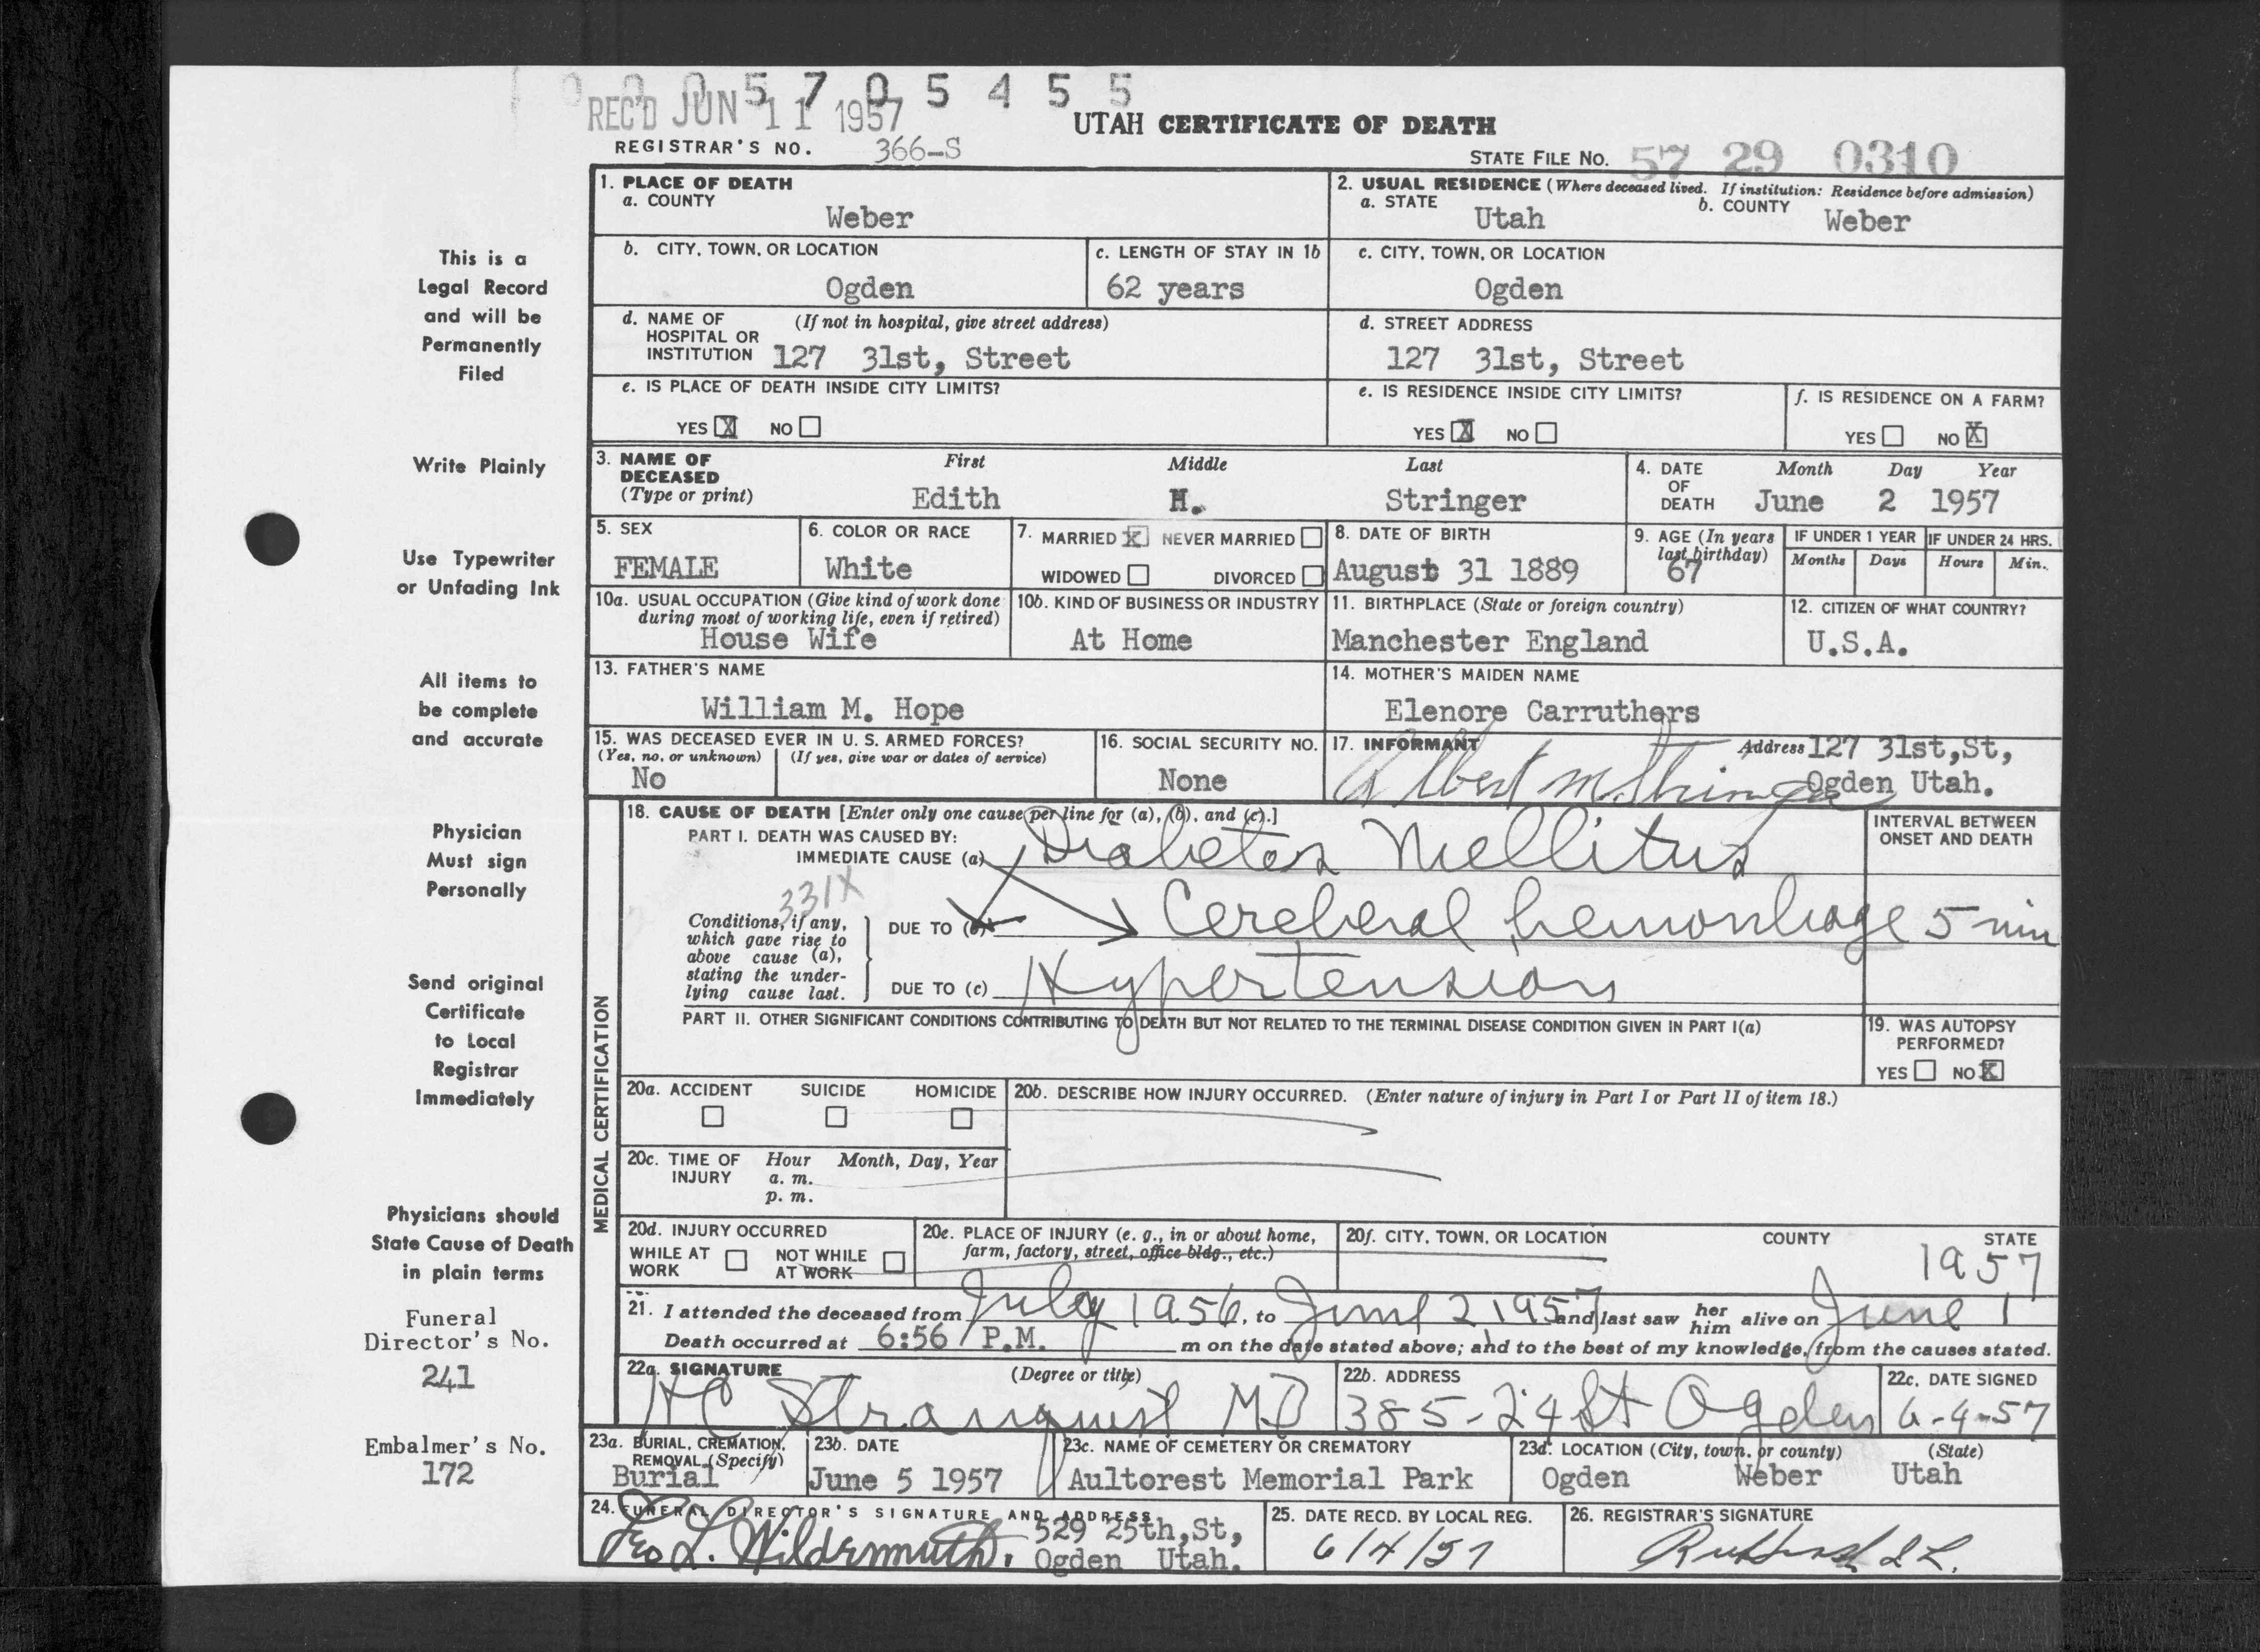 0 0 0 5 7 0 5 4 5 5
REC'D JUN 11 1957
UTAH CERTIFICATE OF DEATH
REGISTRAR'S NO. 366-S
STATE FILE NO. 57 29 0310
This is a
Legal Record
and will be
Permanently
Filed
Write Plainly
Use Typewriter
or Unfading Ink
All items to
be complete
and accurate
Physician
Must sign
Personally
Send original
Certificate
to Local
Registrar
Immediately
Physicians should
State Cause of Death
in plain terms
Funeral
Director's No.
241
Embalmer's No.
172
1. PLACE OF DEATH
a. COUNTY
Weber
2. USUAL RESIDENCE (Where deceased lived. If institution: Residence before admission)
a. STATE Utah b. COUNTY Weber
b. CITY, TOWN, OR LOCATION
Ogden
c. LENGTH OF STAY IN 1b
62 years
c. CITY, TOWN, OR LOCATION
Ogden
d. NAME OF (If not in hospital, give street address)
HOSPITAL OR
INSTITUTION 127 31st, Street
d. STREET ADDRESS
127 31st, Street
e. IS PLACE OF DEATH INSIDE CITY LIMITS?
YES X NO
e. IS RESIDENCE INSIDE CITY LIMITS?
YES X NO
f. IS RESIDENCE ON A FARM?
YES NO X
3. NAME OF First Middle Last
DECEASED
(Type or print) Edith H. Stringer
4. DATE Month Day Year
OF
DEATH June 2 1957
5. SEX
FEMALE
6. COLOR OR RACE
White
7. MARRIED X NEVER MARRIED
WIDOWED DIVORCED
8. DATE OF BIRTH
August 31 1889
9. AGE (In years
last birthday)
67
IF UNDER 1 YEAR IF UNDER 24 HRS.
Months Days Hours Min.
10a. USUAL OCCUPATION (Give kind of work done
during most of working life, even if retired)
House Wife
10b. KIND OF BUSINESS OR INDUSTRY
At Home
11. BIRTHPLACE (State or foreign country)
Manchester England
12. CITIZEN OF WHAT COUNTRY?
U.S.A.
13. FATHER'S NAME
William M. Hope
14. MOTHER'S MAIDEN NAME
Elenore Carruthers
15. WAS DECEASED EVER IN U. S. ARMED FORCES?
(Yes, no, or unknown) (If yes, give war or dates of service)
No
16. SOCIAL SECURITY NO.
None
17. INFORMANT Address 127 31st,St,
Albert M Stringer Ogden Utah.
MEDICAL CERTIFICATION
18. CAUSE OF DEATH [Enter only one cause per line for (a), (b), and (c).]
PART I. DEATH WAS CAUSED BY:
IMMEDIATE CAUSE (a) Diabetes Mellitus
INTERVAL BETWEEN
ONSET AND DEATH
331X
Conditions, if any,
which gave rise to
above cause (a),
stating the under-
lying cause last.
DUE TO (b) Cerebral hemorrhage 5 min
DUE TO (c) Hypertension
PART II. OTHER SIGNIFICANT CONDITIONS CONTRIBUTING TO DEATH BUT NOT RELATED TO THE TERMINAL DISEASE CONDITION GIVEN IN PART I(a)
19. WAS AUTOPSY
PERFORMED?
YES NO X
20a. ACCIDENT SUICIDE HOMICIDE
20b. DESCRIBE HOW INJURY OCCURRED. (Enter nature of injury in Part I or Part II of item 18.)
20c. TIME OF Hour Month, Day, Year
INJURY a. m.
p. m.
20d. INJURY OCCURRED
WHILE AT NOT WHILE
WORK AT WORK
20e. PLACE OF INJURY (e. g., in or about home,
farm, factory, street, office bldg., etc.)
20f. CITY, TOWN, OR LOCATION COUNTY STATE
1957
21. I attended the deceased from July 1956, to June 2 1957 and last saw her him alive on June 1
Death occurred at 6:56 P.M. m on the date stated above; and to the best of my knowledge, from the causes stated.
22a. SIGNATURE (Degree or title)
H C Stranquist MD
22b. ADDRESS
385-24 St Ogden
22c. DATE SIGNED
6-4-57
23a. BURIAL, CREMATION,
REMOVAL (Specify)
Burial
23b. DATE
June 5 1957
23c. NAME OF CEMETERY OR CREMATORY
Aultorest Memorial Park
23d. LOCATION (City, town, or county) (State)
Ogden Weber Utah
24. FUNERAL DIRECTOR'S SIGNATURE AND ADDRESS
Geo L. Wildermuth. 529 25th,St,
Ogden Utah.
25. DATE RECD. BY LOCAL REG.
6/4/57
26. REGISTRAR'S SIGNATURE